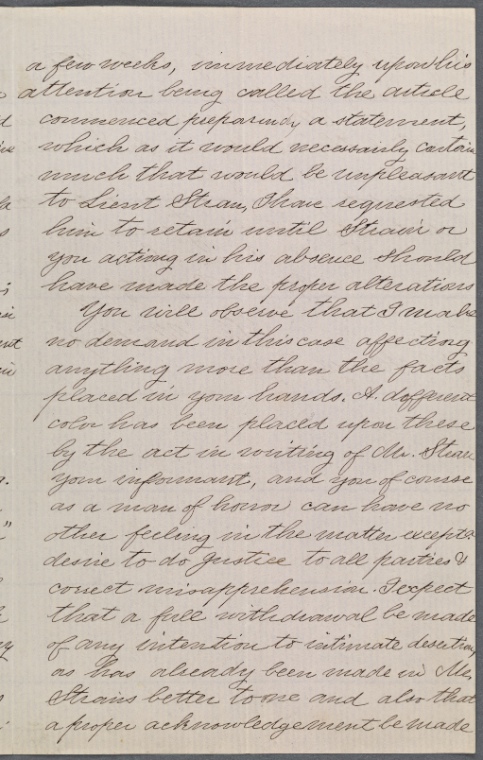 a few weeks, immediately upon his
attention being called the article
commenced preparing a statement,
which as it would necessarily contain
much that would be unpleasant
to Lieut Strain, I have requested
him to retain until Strain or
you acting in his absence should
have made the proper alterations
You will observe that I make
no demand in this case affecting
anything more than the facts
placed in your hands. A different
color has been placed upon these
by the act in writing of Mr. Strain
your informant, and you of course
as a man of honor can have no
other feeling in the matter except a
desire to do justice to all parties &
correct misapprehension. I expect
that a full withdrawal be made
of any intention to intimate desertion
as has already been made in Mr.
Strains better to me and also that
a proper acknowledgement be made